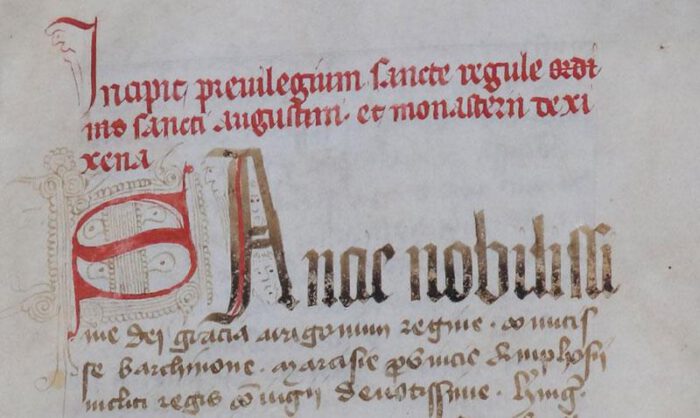 Incipit previlegium sancte regule ordi
nis sancti augustini. et monasterii de xi
xena
SAnac nobilissi
me dei gracia aragonum regine. comitis
se barchinone. marcisie provincie
incliti regis coniugii devotissime.